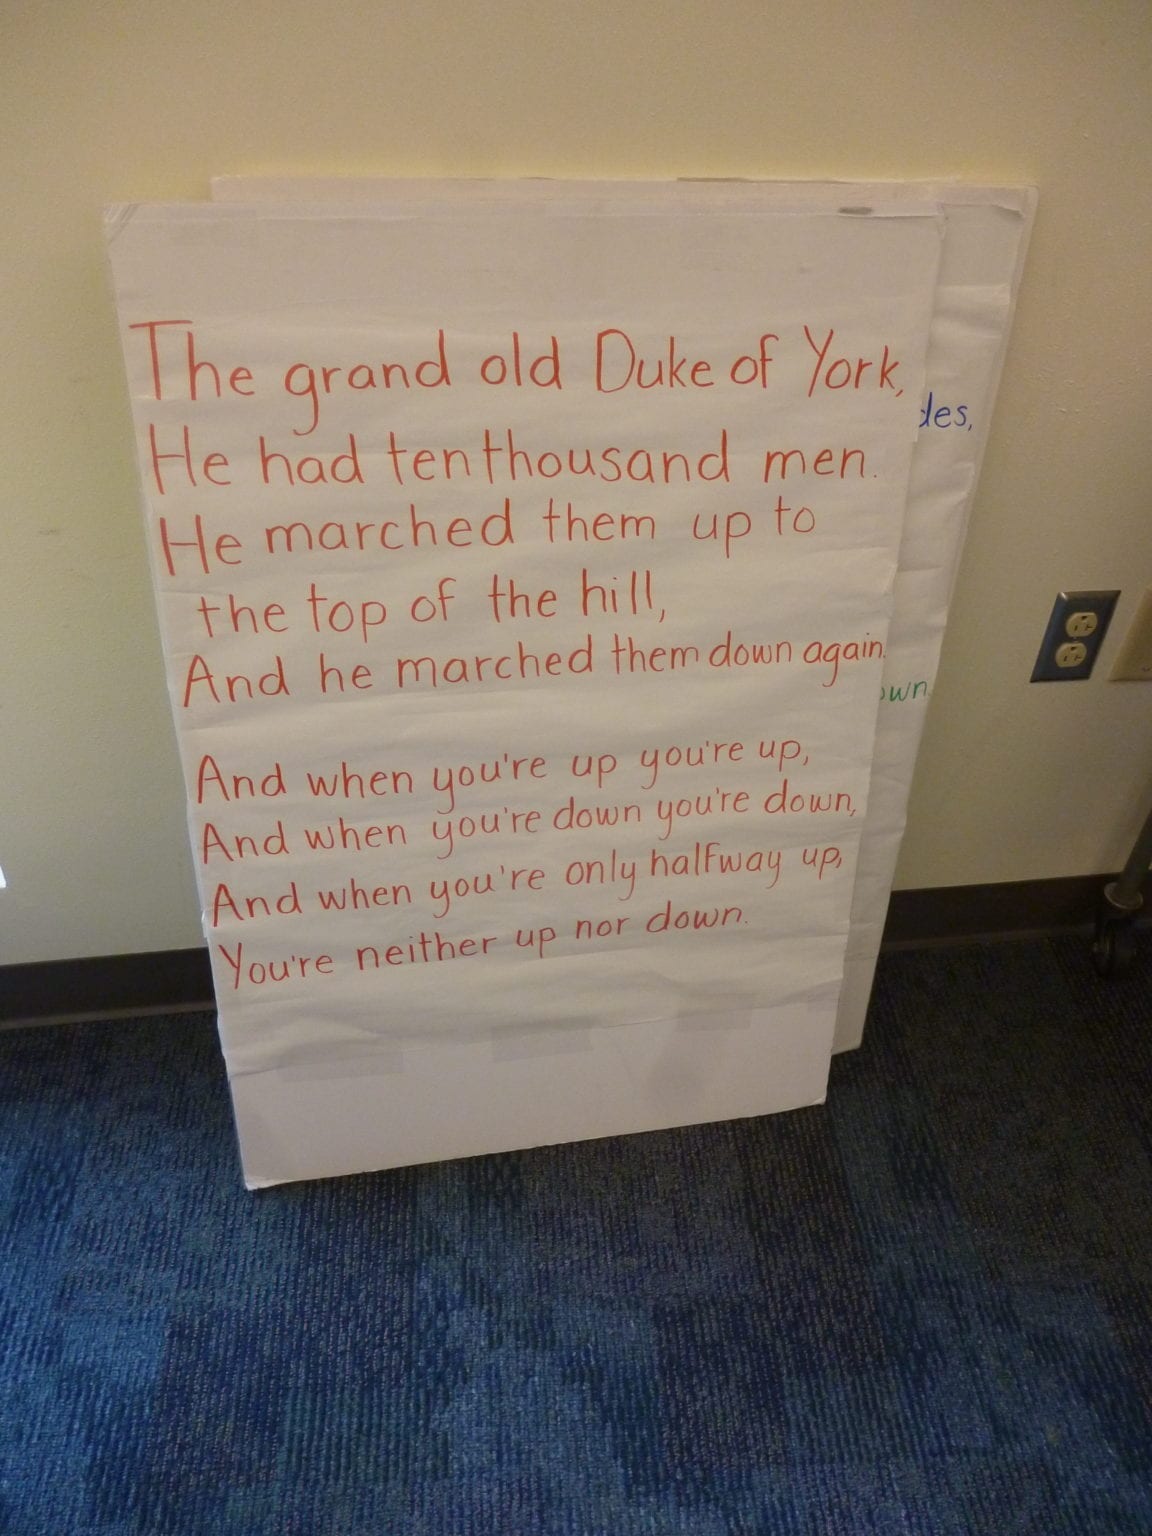 The grand old Duke of York,
He had ten thousand men.
He marched them up to
the top of the hill,
And he marched them down again.
And when you're up you're up,
And when you're down you're down,
And when you're only halfway up,
You're neither up nor down.
des,
own